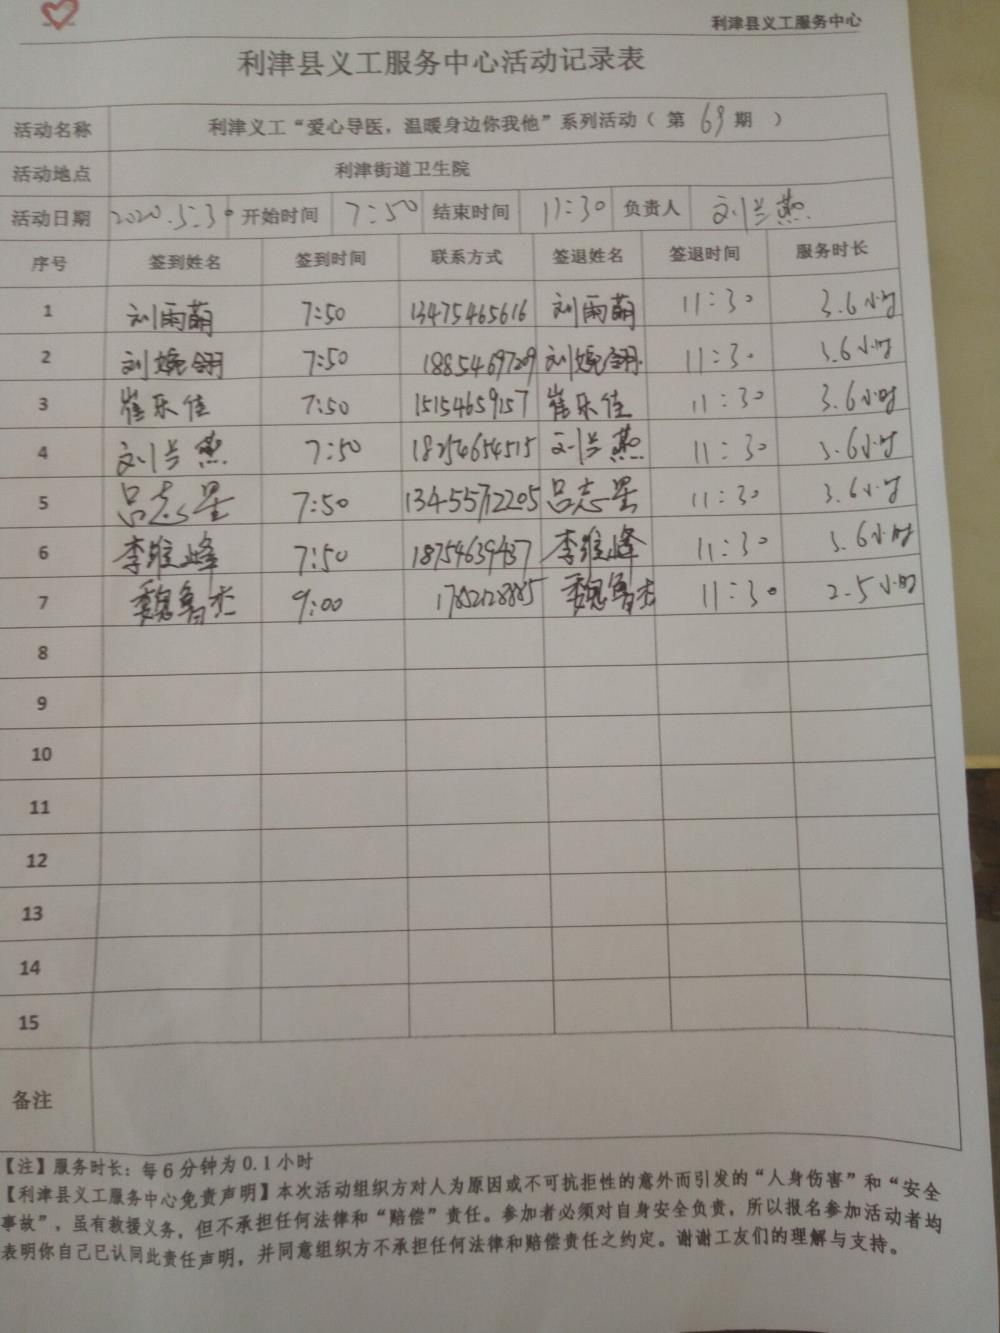 利津县义工服务中心
利津县义工服务中心活动记录表
活动名称 利津义工“爱心导医，温暖身边你我他”系列活动（ 第 69 期 ）
活动地点 利津街道卫生院
活动日期 2020.5.30 开始时间 7:50 结束时间 11:30 负责人 刘兰燕
序号 签到姓名 签到时间 联系方式 签退姓名 签退时间 服务时长
1 刘雨萌 7:50 13475465616 刘雨萌 11:30 3.6小时
2 刘婉翎 7:50 18854697209 刘婉翎 11:30 3.6小时
3 崔乐佳 7:50 15154659157 崔乐佳 11:30 3.6小时
4 刘兰燕 7:50 18254654515 刘兰燕 11:30 3.6小时
5 吕志星 7:50 13455712205 吕志星 11:30 3.6小时
6 李维峰 7:50 18754639437 李维峰 11:30 3.6小时
7 魏鲁杰 9:00 11:30 2.5小时
8
9
10
11
12
13
14
15
备注
【注】服务时长：每6分钟为0.1小时
【利津县义工服务中心免责声明】本次活动组织方对人为原因或不可抗拒性的意外而引发的“人身伤害”和“安全
事故”，虽有救援义务，但不承担任何法律和“赔偿”责任。参加者必须对自身安全负责，所以报名参加活动者均
表明你自己已认同此责任声明，并同意组织方不承担任何法律和赔偿责任之约定。谢谢工友们的理解与支持。